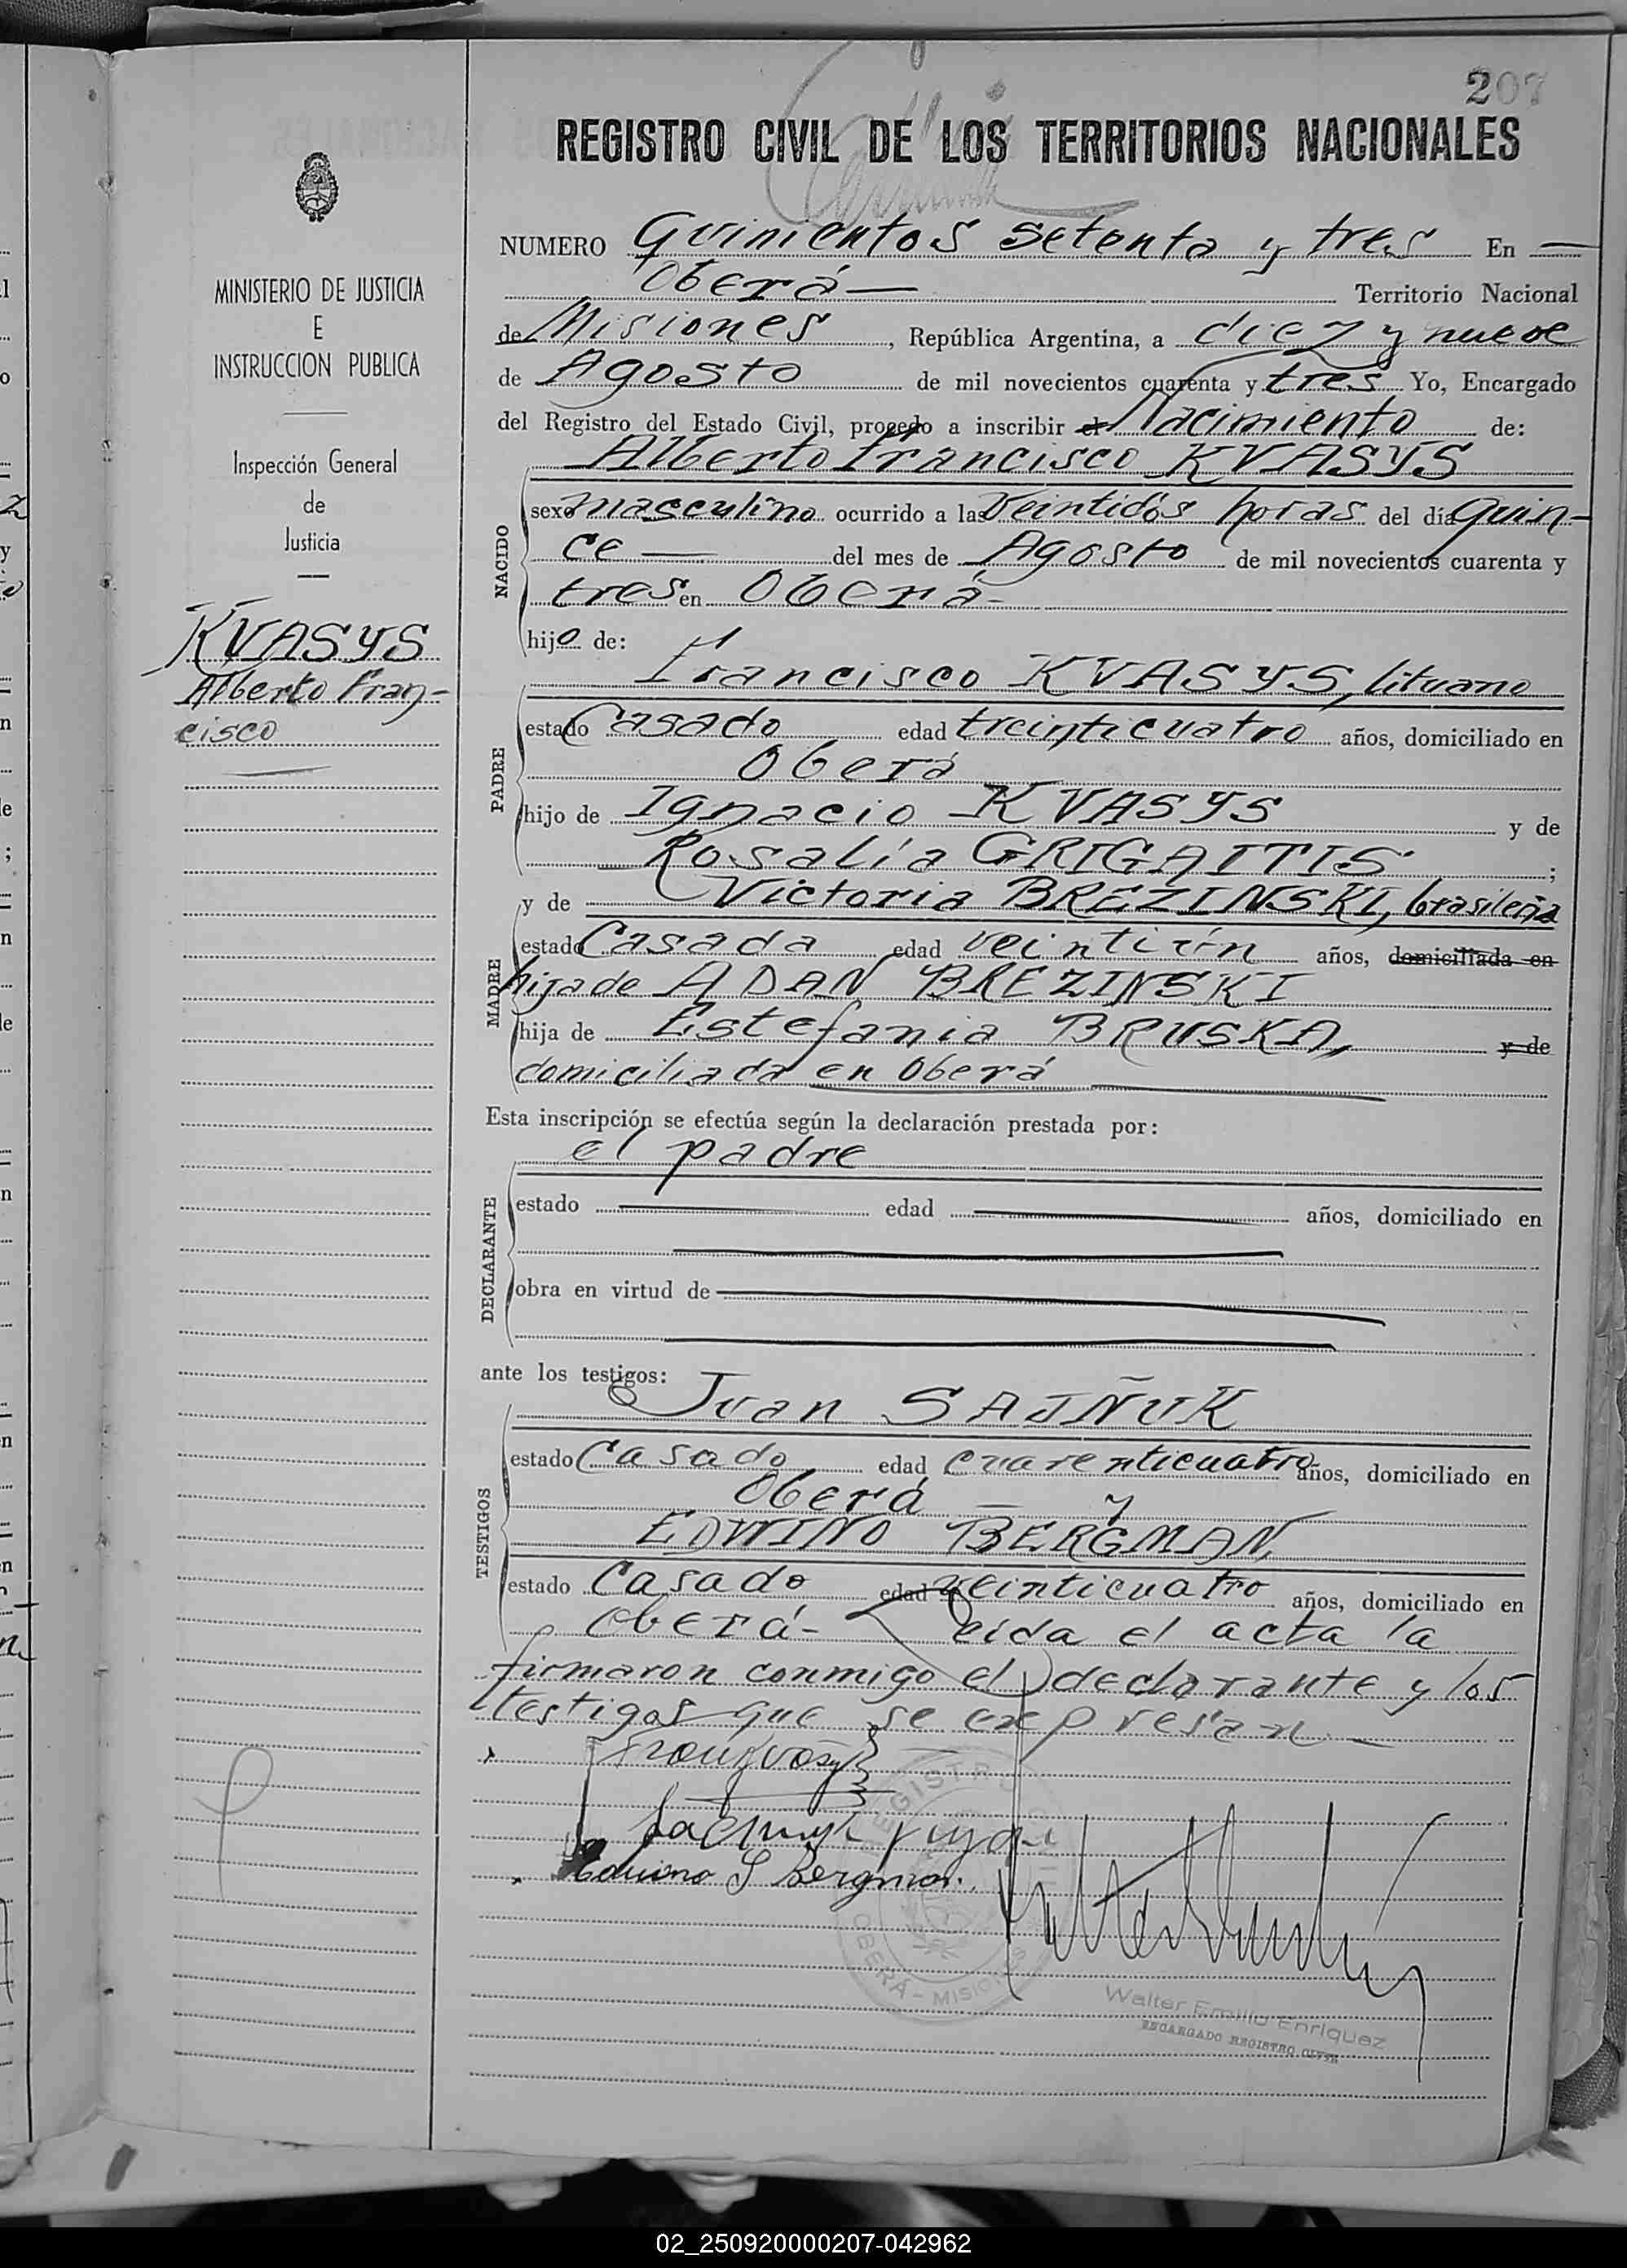 207
REGISTRO CIVIL DE LOS TERRITORIOS NACIONALES
MINISTERIO DE JUSTICIA
E
INSTRUCCION PUBLICA
Inspección General
de
Justicia
KVASYS
Alberto Fran-
cisco
NUMERO Quinientos setenta y tres En
Oberá Territorio Nacional
de Misiones, República Argentina, a diez y nueve
de Agosto de mil novecientos cuarenta y tres Yo, Encargado
del Registro del Estado Civil, procedo a inscribir el Nacimiento de:
Alberto Francisco KVASYS
NACIDO
sexo masculino ocurrido a las veintidós horas del día quin-
ce del mes de Agosto de mil novecientos cuarenta y
tres en Oberá-
hijo de:
Francisco KVASYS, lituano
PADRE
estado Casado edad treinticuatro años, domiciliado en
Oberá
hijo de Ignacio KVASYS y de
Rosalía GRIGAITIS;
y de Victoria BREZINSKI, brasileña
MADRE
estado Casada edad veintiún años, domiciliada en
hija de ADAN BREZINSKI
hija de Estefania BRUSKA, y de
domiciliada en Oberá
Esta inscripción se efectúa según la declaración prestada por:
el padre
DECLARANTE
estado edad años, domiciliado en
obra en virtud de
ante los testigos:
Juan SAJÑUK
TESTIGOS
estado Casado edad cuarenticuatro años, domiciliado en
Oberá - y
EDWINO BERGMAN,
estado Casado edad veinticuatro años, domiciliado en
Oberá- Leida el acta la
firmaron conmigo el declarante y los
testigos que se expresan
Edwino S Bergman
REGISTRO CIVIL
OBERÁ - MISIONES
Walter Emilio Enriquez
ENCARGADO REGISTRO CIVIL
02_250920000207-042962